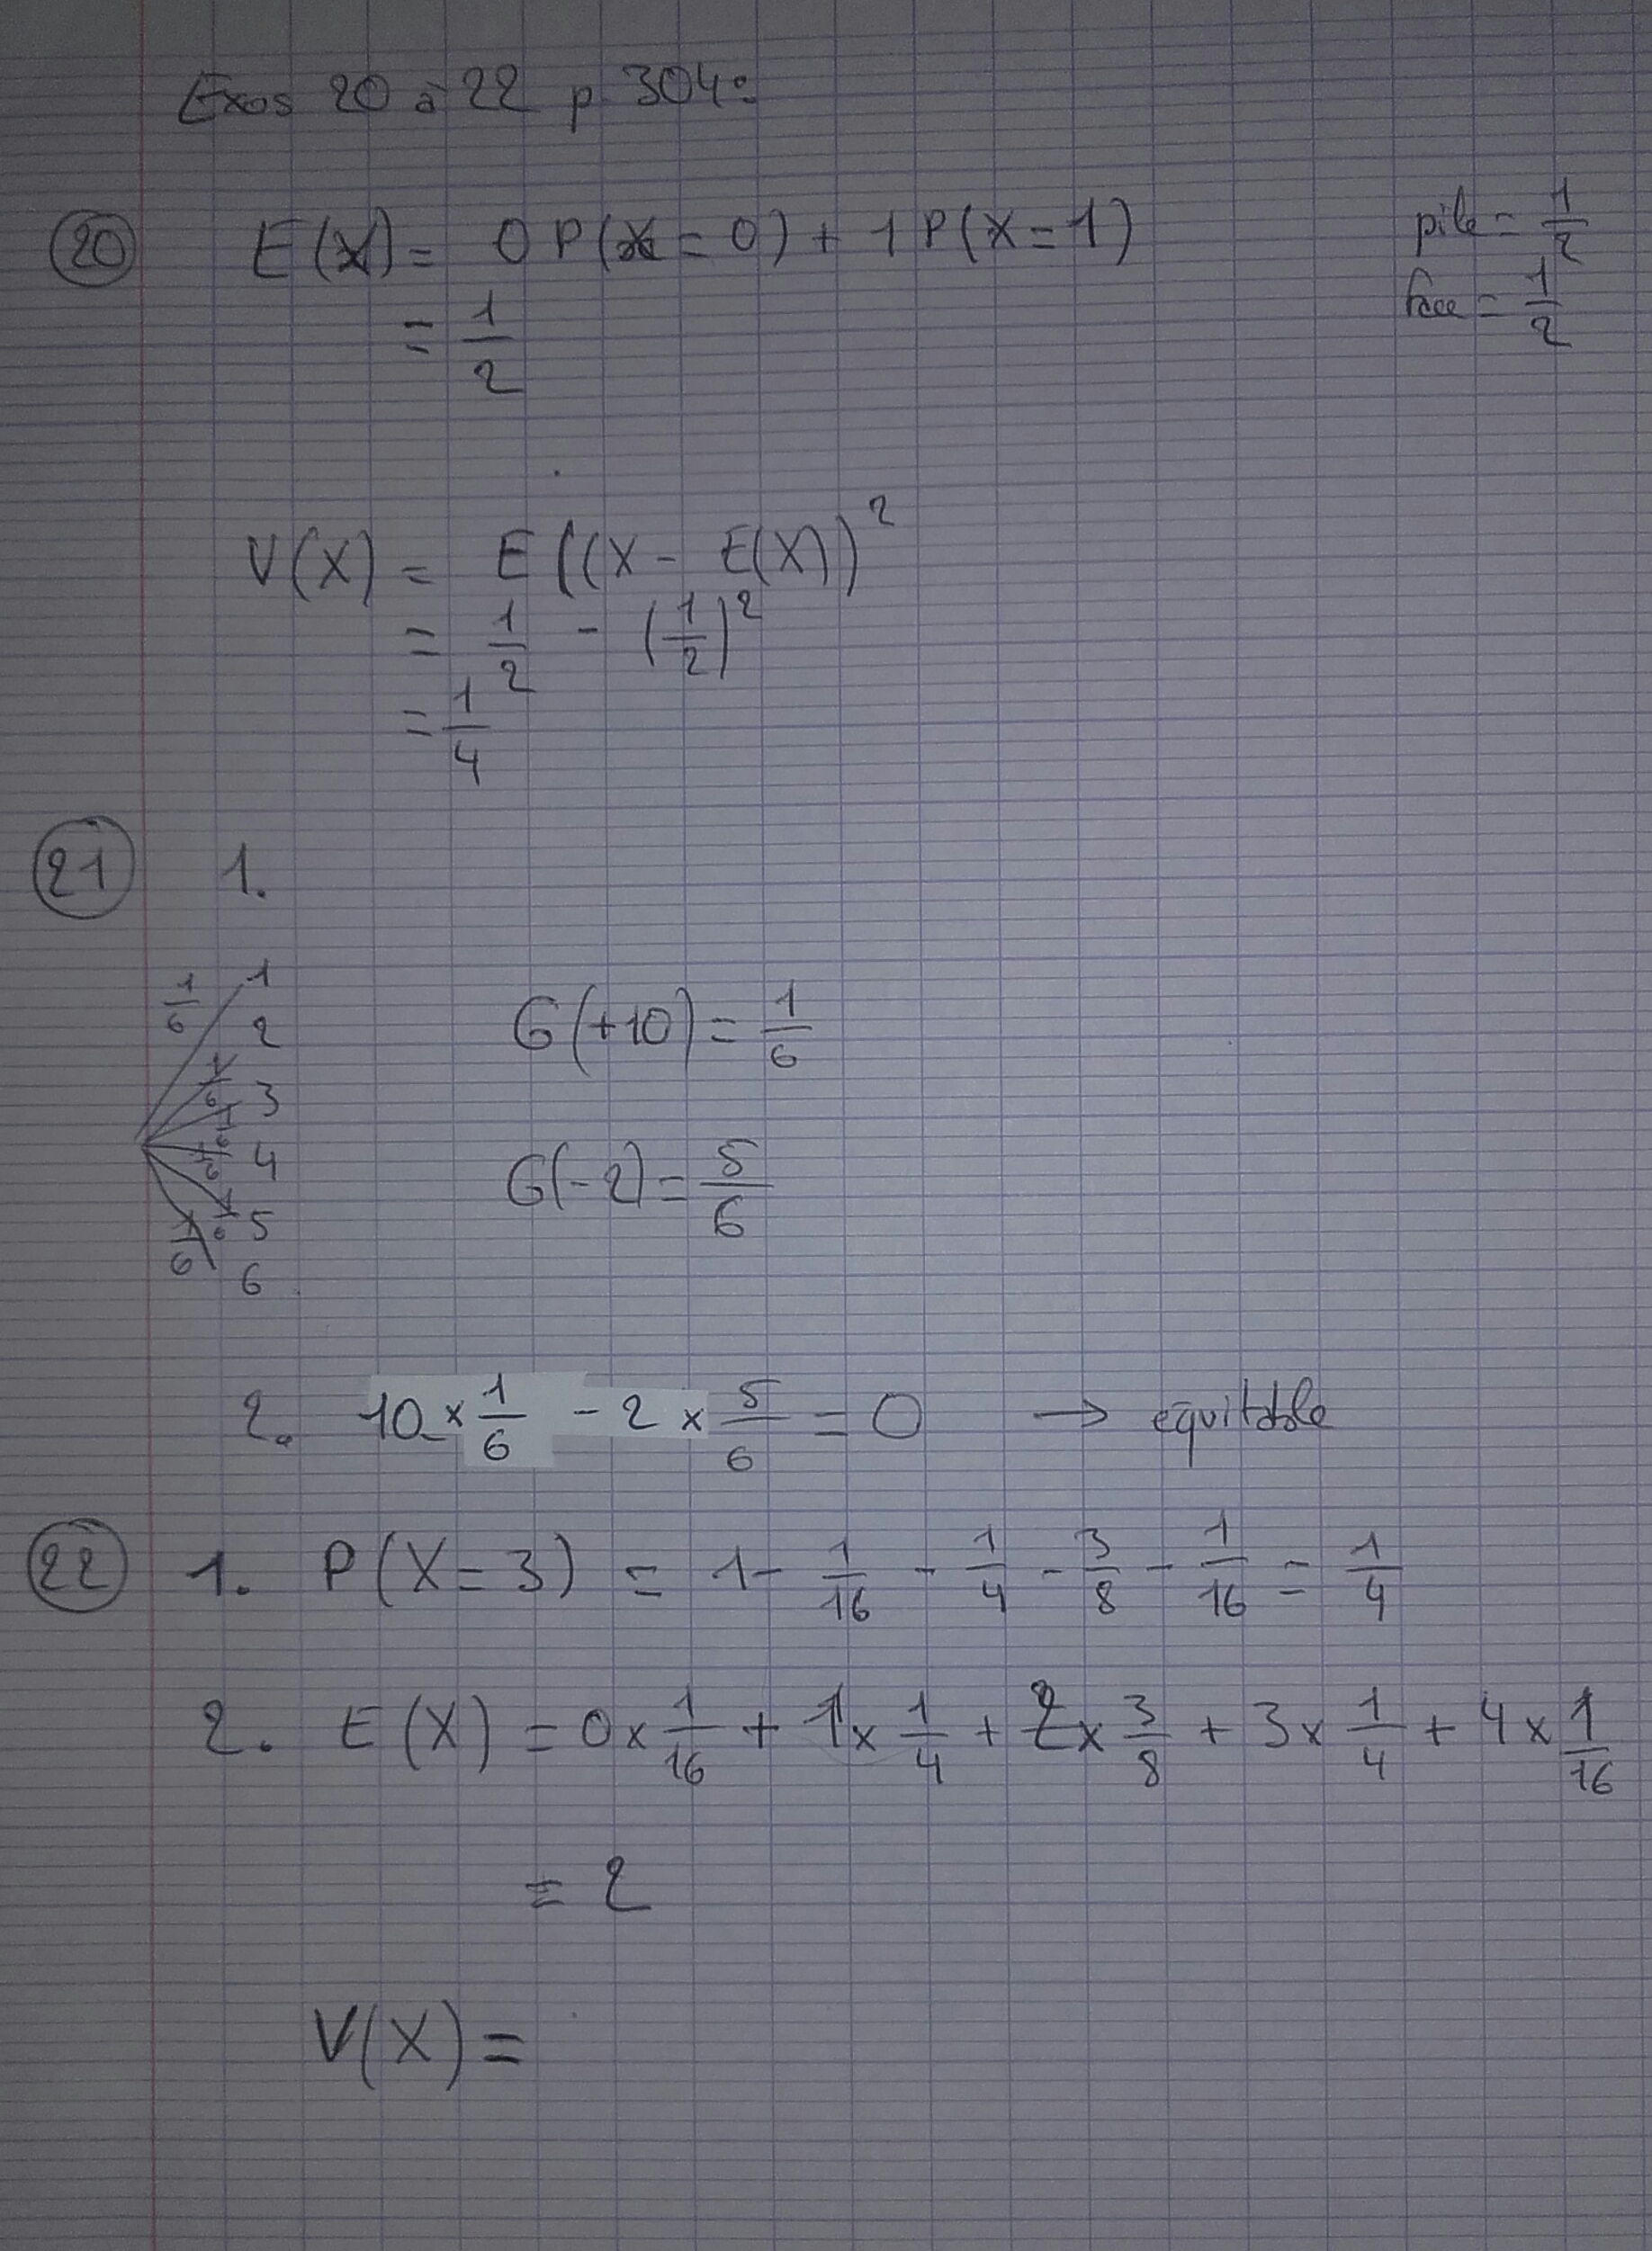 Exos 20 à 22 p 304:
20 E(X) = 0 P(X = 0) + 1 P(X = 1)
pile = 1/2
face = 1/2
= 1/2
V(X) = E((X - E(X))²
= 1/2 - (1/2)²
= 1/4
21 1.
1/6 1
2
1/6
3
1/6
1/6 4
1/6 5
1/6
6
G(+10) = 1/6
G(-2) = 5/6
2. 10 × 1/6 - 2 × 5/6 = 0 → équitable
22 1. P(X = 3) = 1 - 1/16 - 1/4 - 3/8 - 1/16 = 1/4
2. E(X) = 0 × 1/16 + 1 × 1/4 + 2 × 3/8 + 3 × 1/4 + 4 × 1/16
= 2
V(X) =